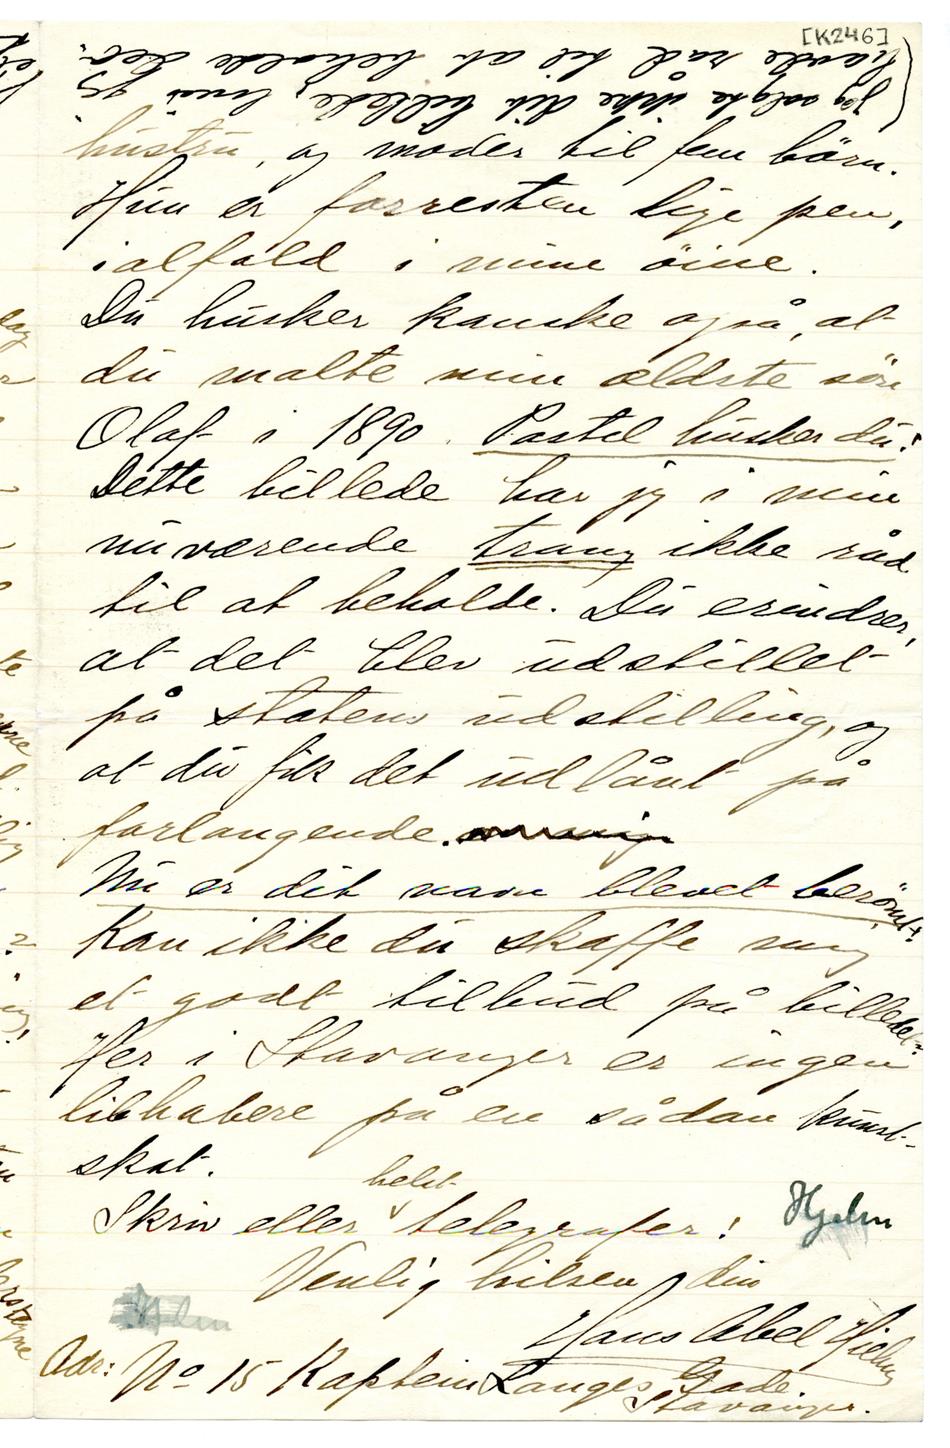 [K246]
jeg solgte ikke dit billede, hvis jeg
havde råd til at beholde det.
hustru, og moder til fem börn.
Hun er forresten lige pen,
ialfald i mine öine.
Du husker kanske også, at
du malte min ældste sön
Olaf i 1890. Pastel husker du!
Dette billede har jeg i min
nuværende trang ikke råd
til at beholde. Du erindrer,
at det blev udstillet
på statens udstilling, og
at du fik det udlånt på
forlangende.
Nu er dit navn blevet berömt!
Kan ikke du skaffe mig
et godt tilbud på billedet?
Her i Stavanger er ingen
libhabere på en sådan kunst-
skat.
Skriv eller helst telegrafer!
Hjelm
Venlig hilsen, din
Hans Abel Hjelm
Adr: No 15 Kaptein Langes Gade.
Stavanger.